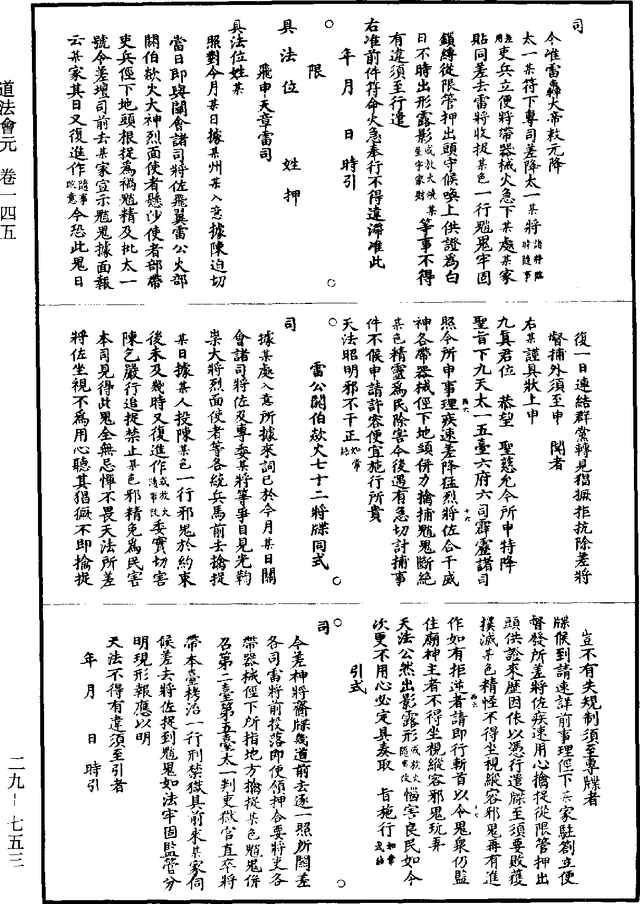 道法會元 卷一四五
二九—七五三
司
今准雷轟大帝敕元降
太一某符下專司差降太一某將諸將臨時隨事
差用吏兵立便將帶器械火急下某處某家
貼同差去雷將收捉某色一行魈鬼牢固
鎖縛從限管押出頭守候喚上供證為白
日不時出形露影或放火燒某屋宇家財等事不得
有違須至行遣
右准前件符命火急奉行不得違滯准此
年 月 日 時引
限
具 法 位 姓 押
飛申天章雷司
具法位姓某
照對今月某日據某州某入意據陳迫切
當日即與關會諸司將佐飛翼雷公火部
關伯歘火大神烈面使者懸沙使者部帶
吏兵徑下地頭根捉為禍魈精及批太一
號令差壇司前去某家宣示魈鬼據面報
云某家其日又復進作隨事改意今恐此鬼日
復一日連結群黨轉見猖獗拒抗除差將
督捕外須至申 聞者
右某謹具狀上申
九真君位 恭望 聖慈允令所申特降
聖旨下九天太一五臺六府六司霹靂諸司
照令所申事理疾速差降猛烈將佐合干威
神各帶器械徑下地頭併力擒捕魈鬼斷絕
某色精靈為民除害今後遇有急切討捕事
件不候申請許容便宜施行所貴
天法昭明邪不干正如常語
雷公關伯歘火七十二將牒同式
司
據某處入意所據來詞已於今月某日關
會諸司將佐及專委某將等爭目見光鞫
崇大將烈面使者等各統兵馬前去擒捉
某日據某人投陳某色一行邪鬼於約束
後未及幾時又復進作或放火隨事改委實切害
陳乞嚴行追捉禁止某色邪精免為民害
本司見得此鬼全無忌憚不畏天法所差
將佐坐視不為用心聽其猖獗不即擒捉
豈不有失規制須至專牒者
牒候到請速詳前事理徑下某家駐劄立便
督發所差將佐疾速用心擒捉從限管押出
頭供證來歷因依以憑行遣牒至須要敗獲
撲滅某色精怪不得坐視縱容邪鬼再有進
作如有拒逆者請即行斬首以令鬼眾仍監
住廟神主者不得坐視縱容邪鬼玩弄
天法公然出影露形或放火隨事改惱害良民如今
次更不用心必定具奏取 旨施行如常式語
引式
司
今差神將齎牒幾道前去逐一照所關差
各司雷將前投落即便領押合要將吏各
帶器械徑下所指地方擒捉某色魈鬼併
召第二臺第五臺太一判吏獄官直卒將
帶本臺栲治一行刑禁獄具前來某家伺
候差去將佐捉到魈鬼如法牢固監管分
明現形報應以明
天法不得有違須至引者
年 月 日 時引